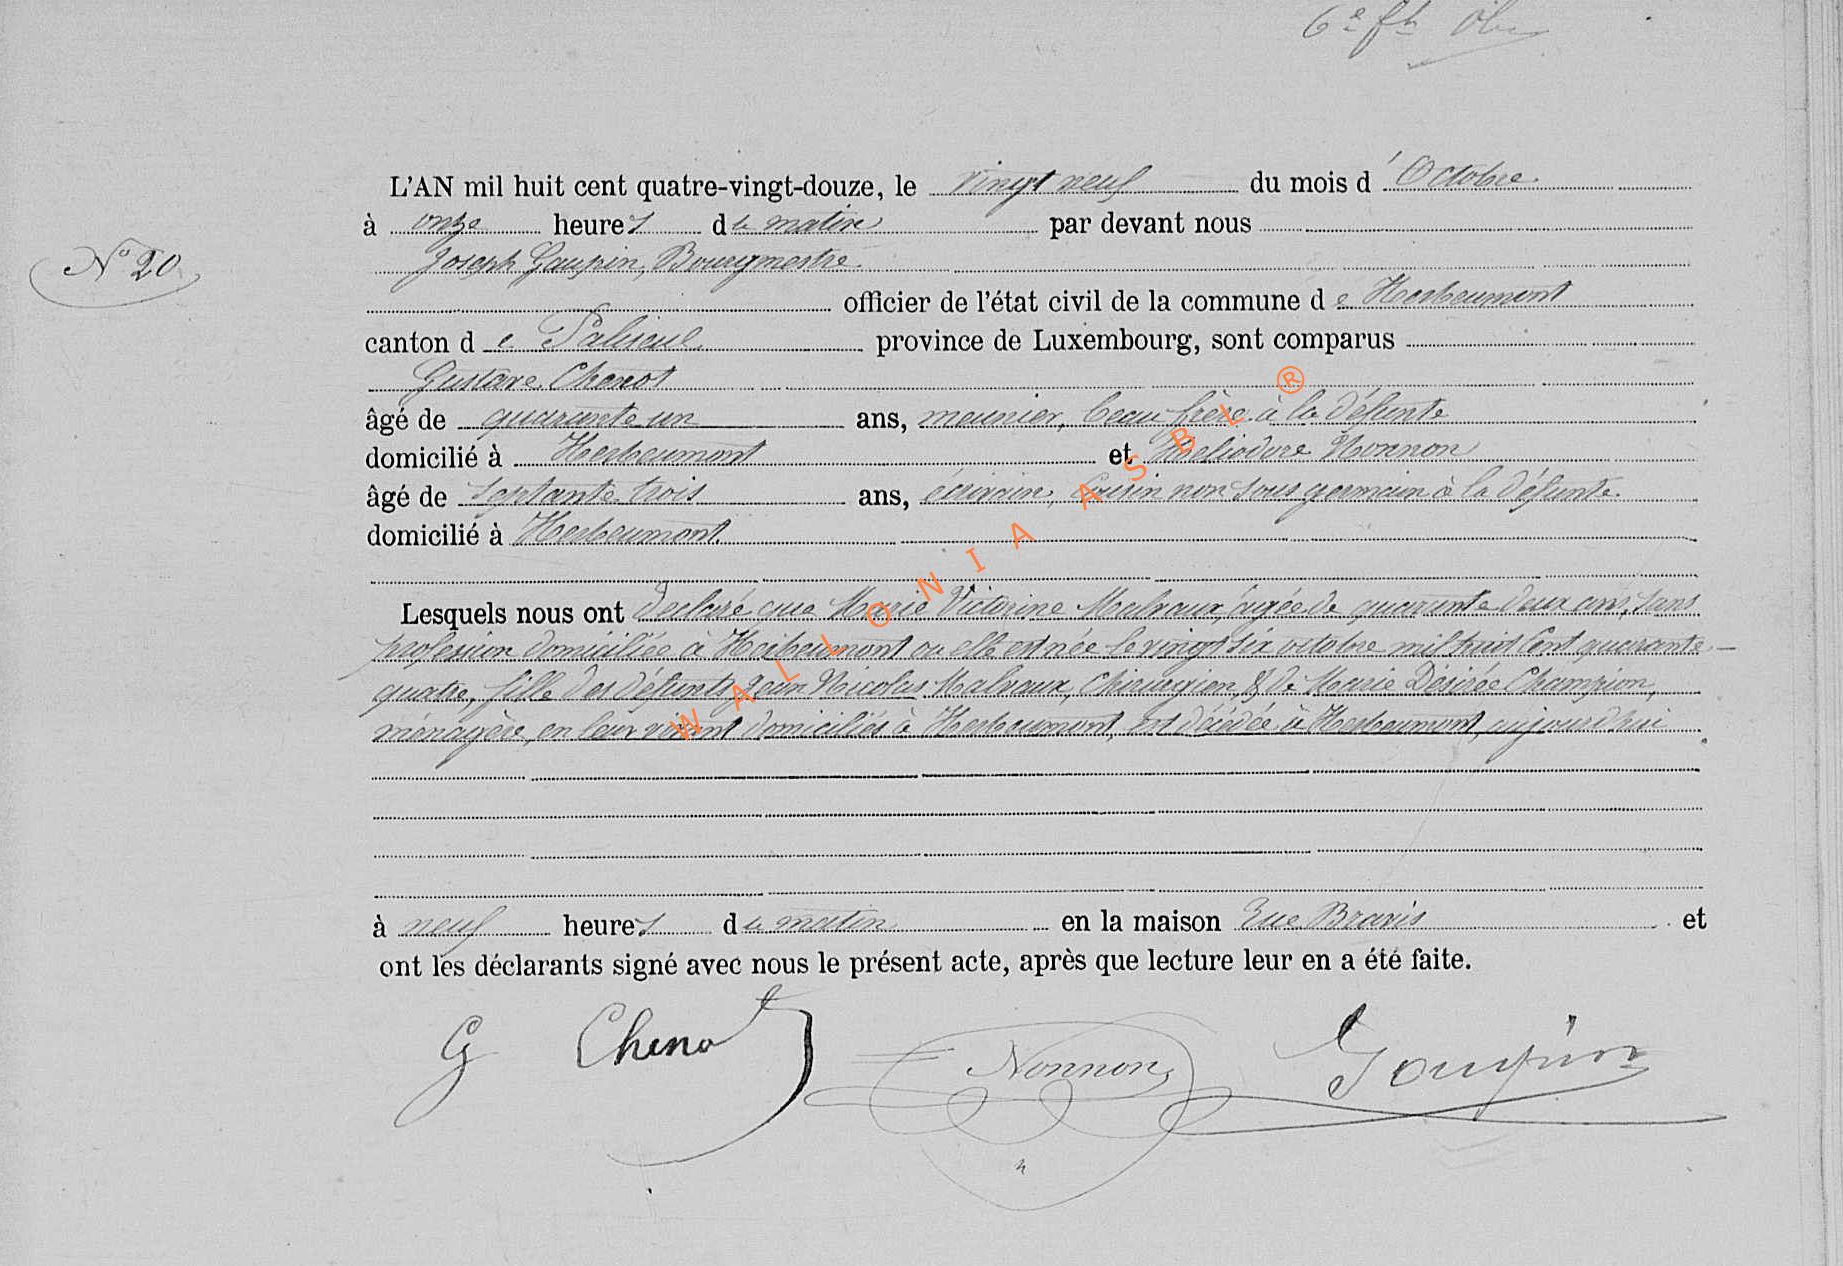 6e
L'AN mil huit cent quatre-vingt-douze, le vingt neuf du mois d'Octobre
à onze heures du matin par devant nous
Joseph Goupin, Bourgmestre
officier de l'état civil de la commune de Herbeumont
N° 20
canton de Paliseul province de Luxembourg, sont comparus
Gustave Chenot
âgé de quarante un ans, meunier, beau frère à la défunte
domicilié à Herbeumont et Heliodore Nonnon
âgé de septante trois ans, écrivain, cousin non sous germain à la défunte
domicilié à Herbeumont.
Lesquels nous ont déclaré que Marie Victorine Malvaux, âgée de quarante deux ans, sans
profession domiciliée à Herbeumont ou elle est née le vingt six octobre mil huit cent quarante
quatre, fille des défunts Jean Nicolas Malvaux, Chirurgien, & de Marie Désirée Champion,
ménagère, en leur vivant domiciliés à Herbeumont, est décédée à Herbeumont, aujourd'hui
à neuf heures du matin en la maison Rue Bravis et
ont les déclarants signé avec nous le présent acte, après que lecture leur en a été faite.
G Chenot Nonnon Goupin
WALLONIA ASBL ®